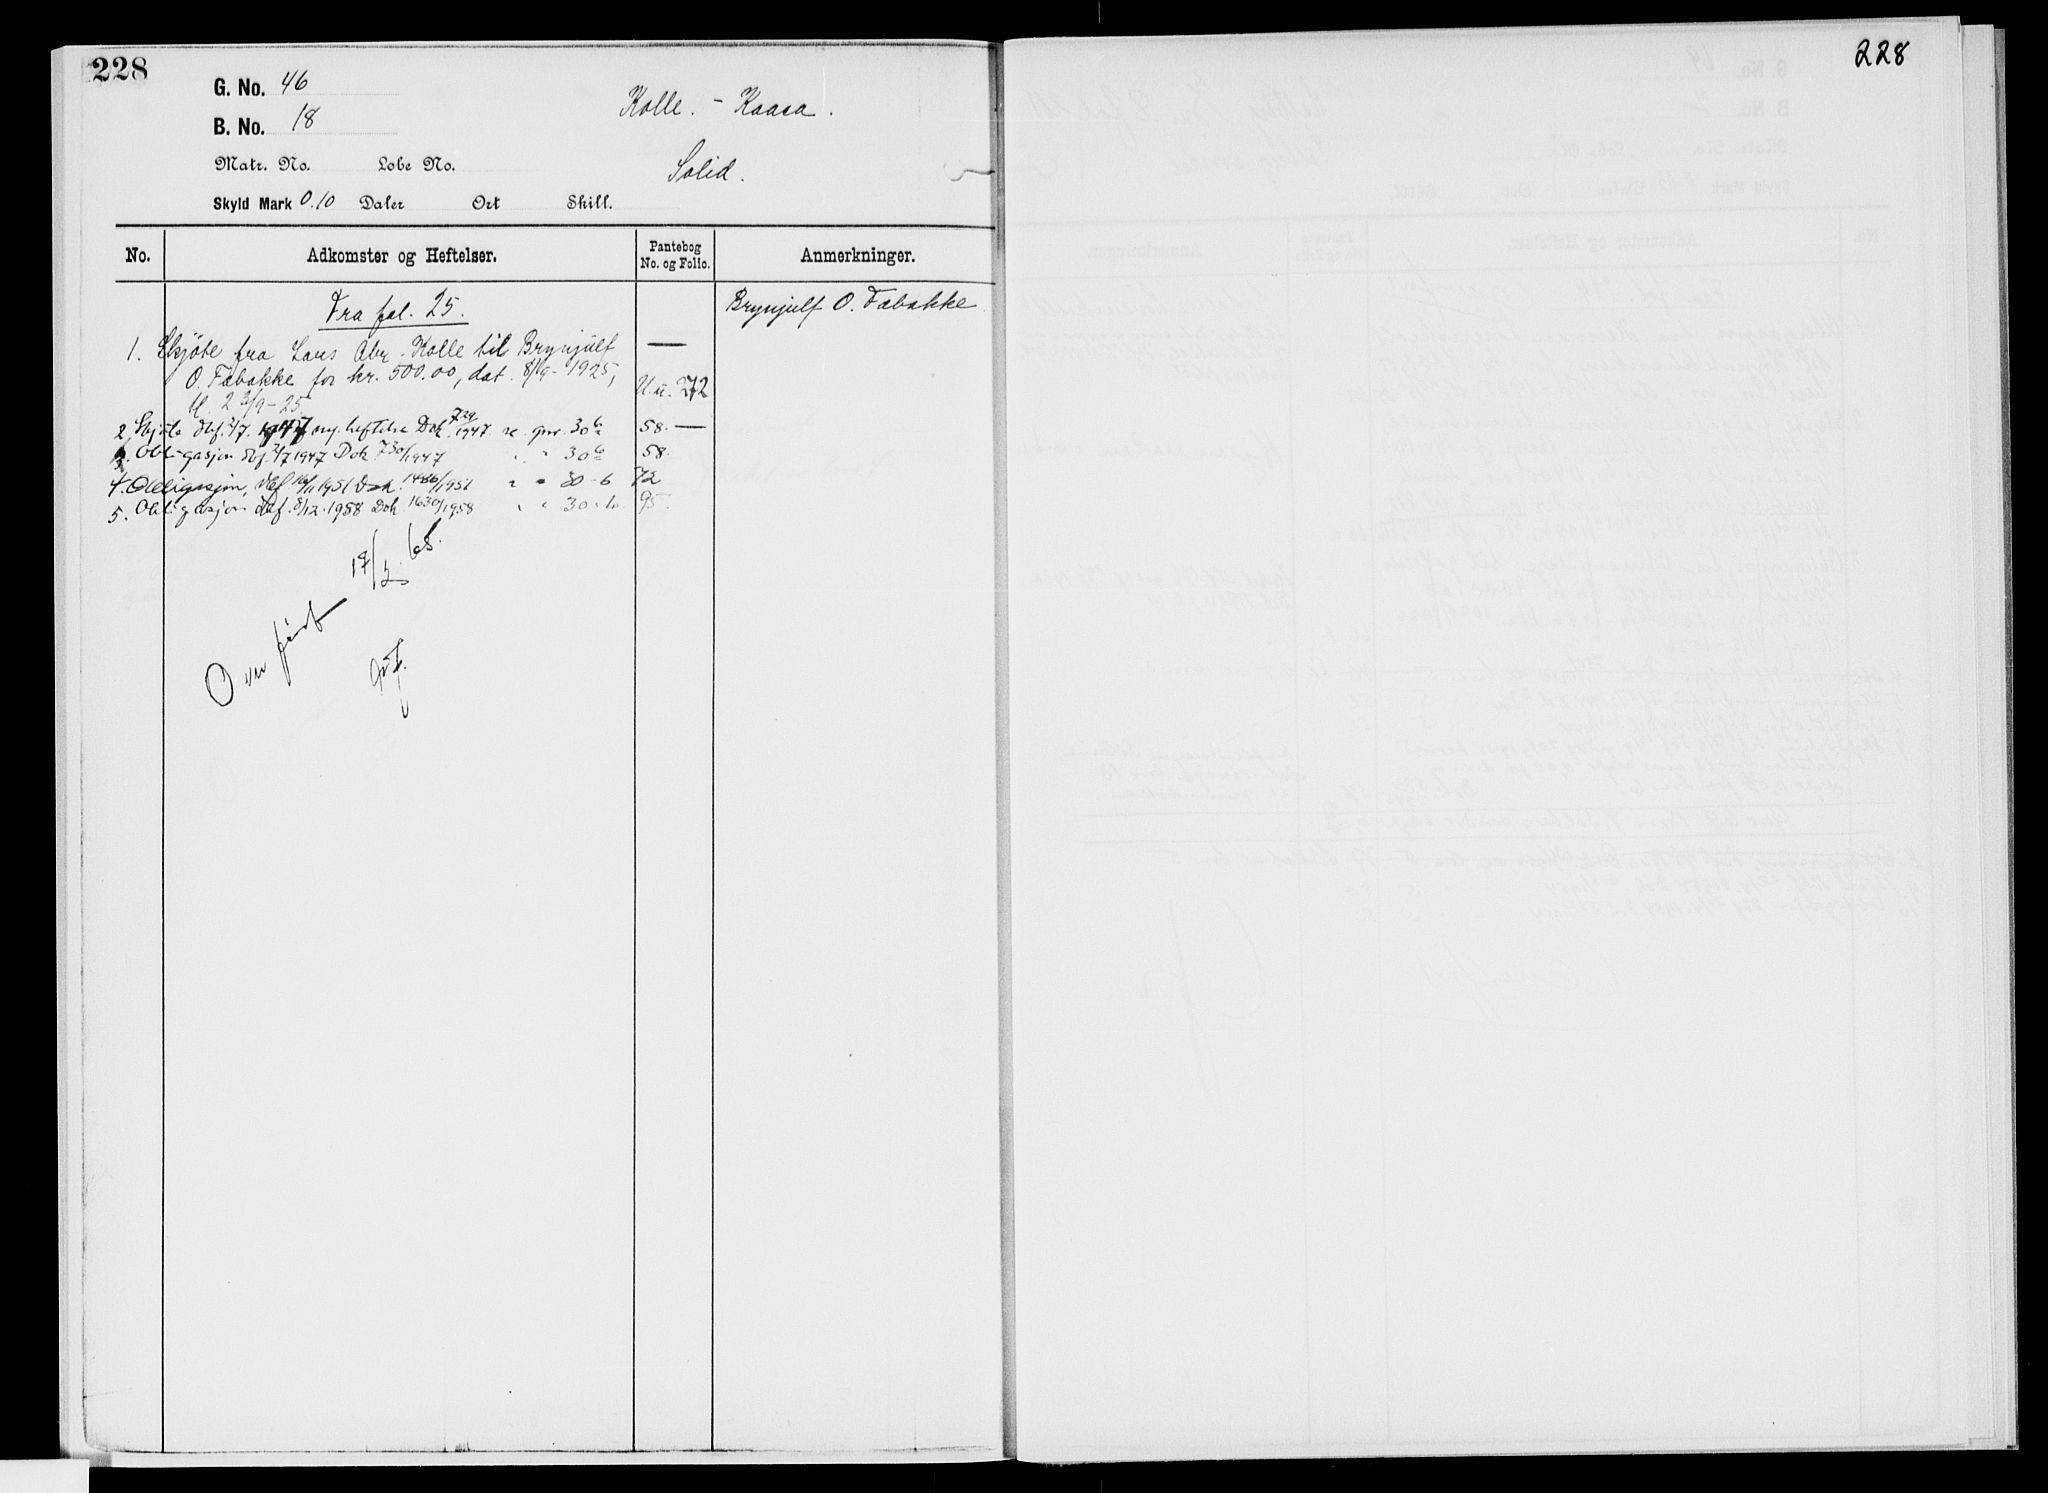 228
G. No. 46
B. No. 18
Kolle. - Kaasa.
Matr. No. Løbe No.
Solid.
Skyld Mark 0.10 Daler Ort Skill.
No. Adkomster og Heftelser. Pantebog No. og Folio. Anmerkninger.
Fra fol. 25.
Brynjulf O. Tæbakke.
1. Skjöte fra Lars Abr. Kolle til Brynjulf —
O. Tæbakke for kr. 500.00, dat. 8/9 - 1925,
tl. 23/9-25. U.u. 272
2. Skjöte dbf. 2/7. 1947 mg. heftelse Dok. 729/1947. se gnr. 30 6 58. —
3. Obligasjon dbf. 2/7 1947 Dok 730/1947 " " 30 6 58.
4. Obligasjon, dbf 16/11 1951 Dok. 1486/1951 " " 30-6 72
5. Obligasjon dbf. 8/12. 1958 Dok. 1630/1958 " " 30-6. 95.
Overfört 17/3. 68.
228